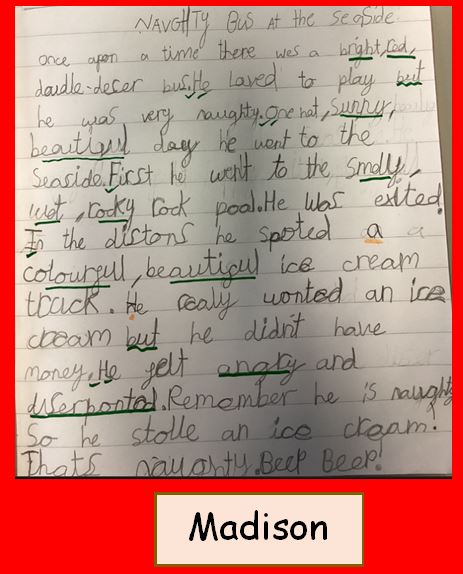 NAUGHTY BUS At the SeaSide
once apon a time there wes a bright, Red,
doudle-decer bus. He Laved to play but
he was very naughty. One hot, Sunny,
beautigul day he went to the
Seaside. First he went to the smely,
wet, rocky rock pool. He was exited.
In the distons he spoted a
colourgul, beautigul ice cream
track. He realy wonted an ice
cream but he didn't have
money. He gelt angry and
diserponted. Remember he is naughty
So he stolle an ice cream!
Thats naughty. Beep Beep!
Madison